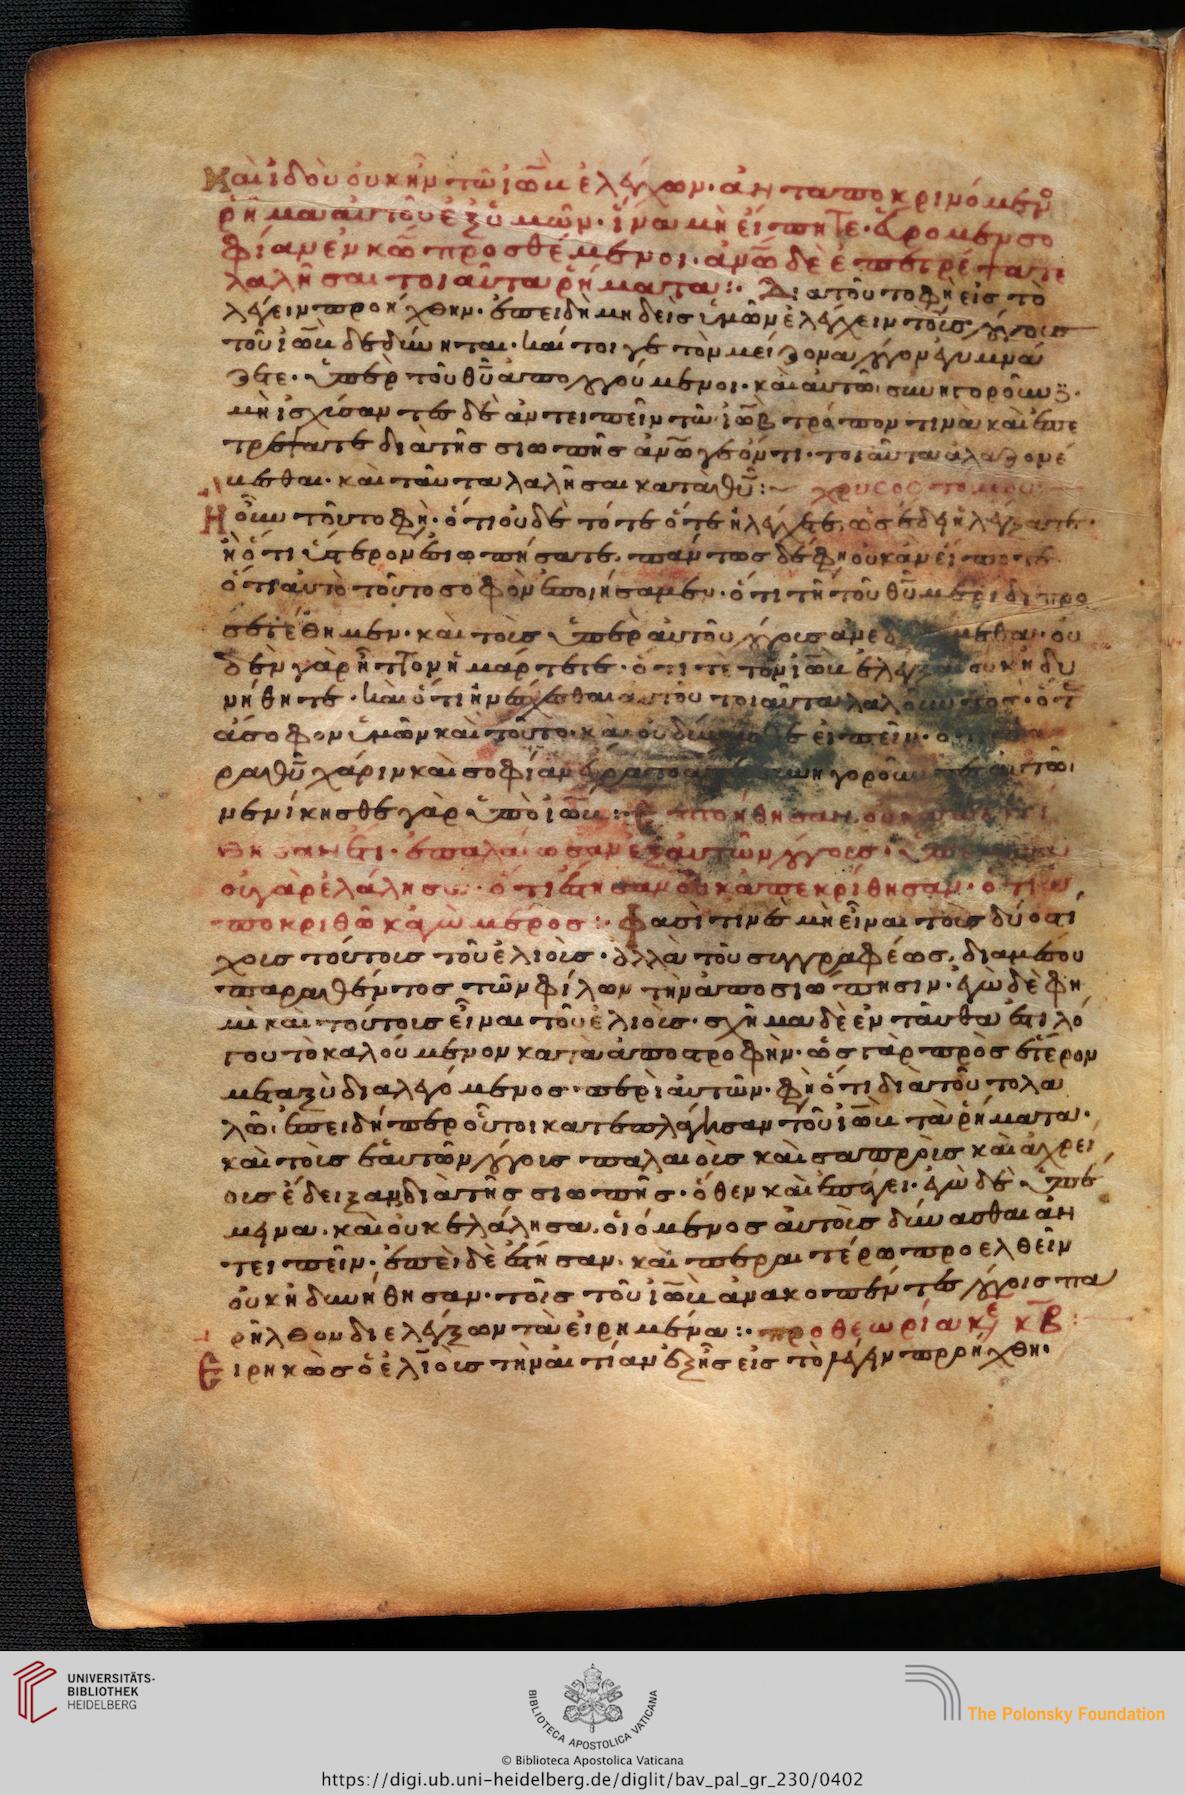 καὶ ἰδοὺ οὐκ ἦν τῶ ἰὼβ ἐλέγχων· ἀνταποκρινόμενος
ῥήματα αὐτοῦ ἐξ ὑμῶν· ἵνα μὴ εἴπητε· εὕρομεν σο
φίαν ἐν κω προσθέμενοι· ἀνω δὲ ἐπετρέψατε
λαλῆσαι τοιαῦτα ῥήματα:· Διὰ τοῦτο φη εἰς τὸ
λέγειν προήχθην· ἐπειδὴ μηδεὶς ὑμῶν ἐλέγχειν τοῖς λόγοις
τοῦ ἰὼβ δεδύνηται· καί τοι γε τὸν μείζονα
ζετε· ὑπὲρ τοῦ θυ ἀπολογούμενοι· καὶ αὐτῶ συνηγοροῦντες·
μὴ ἰσχύσαντες δὲ ἀντειπεῖν τῶ ἰὼβ τρόπον τινὰ καὶ ἐπε
τρέψατε διὰ τῆς σιωπῆς ἀνω γε ὄντι· τοιαῦτα ἀλαζονεύ
εσθαι· καὶ ταῦτα λαλῆσαι κατὰ θυ:~ χρυσοστόμου
Ἢ οὖν τοῦτο φη· ὅτι οὐδὲ τότε ὅτε ἠλέγξατε·
ἢ ὅτι ὕστερον ἐσιωπήσατε· πάντως δέ φη οὐκ ἂν εἴποτε
ὅτι αὐτὸ τοῦτο σοφὸν ἐποιήσαμεν· ὅτι τῆ τοῦ θυ μερίδι προ
σετέθημεν· καὶ τοῖς ὑπὲρ αὐτοῦ λόγοις
δὲν γὰρ ἧττον ἡμάρτετε· ὅτι τε τὸν ἰὼβ ἐλέγξαι οὐκ ἠδυ
νήθητε· καὶ ὅτι ἠνέσχεσθε αὐτοῦ τοιαῦτα λαλοῦντος·
ἄσοφον ὑμῶν καὶ τοῦτο· καὶ οὐ δύνασθε εἰπεῖν· ὅτι
ρα θυ χάριν καὶ σοφίαν συνηγοροῦντες αὐτῶ·
νενίκησθε γὰρ ὑπὸ ἰώβ:· Ἐπτοήθησαν οὐκ ἀπεκρί
θησαν ἔτι· ἐπαλαίωσαν ἐξ αὐτῶν λόγους· ὑπέμεινα
οὐ γὰρ ἐλάλησα· ὅτι ἔστησαν οὐκ ἀπεκρίθησαν· ὅτι
ποκριθῶ κἀγὼ μέρος:· Φασὶ τινὲς μὴ εἶναι τοὺς δύο στί
χους τούτους τοῦ ἐλιούς· ἀλλὰ τοῦ συγγραφέως· διαμέσου
παρατεθέντος τῶν φίλων τὴν ἀποσιώπησιν· ἐγὼ δὲ φη
μὶ καὶ τούτους εἶναι τοῦ ἐλιούς· σχῆμα δὲ ἐνταῦθα ἐστὶ λό
γου τὸ καλούμενον κατὰ ἀποστροφήν· ὡς γὰρ πρὸς ἕτερον
μεταξὺ διαλεγόμενος περὶ αὐτῶν· φη ὅτι διὰ τοῦτο λα
λῶ· ἐπειδήπερ οὗτοι κατεπλάγησαν τοῦ ἰὼβ τὰ ῥήματα·
καὶ τοὺς ἑαυτῶν λόγους παλαιοὺς καὶ σαπροὺς καὶ ἀχρεί
ους ἔδειξαν διὰ τῆς σιωπῆς· ὅθεν καὶ ἐπάγει· ἐγὼ δὲ ὑπέ
μεινα· καὶ οὐκ ἐλάλησα· οἰόμενος αὐτοὺς δύνασθαι ἀν
τειπεῖν· ἐπεὶ δὲ ἔστησαν· καὶ περαιτέρω προελθεῖν
οὐκ ἠδυνήθησαν· τοῖς τοῦ ἰὼβ ἀνακοπέντες λόγοις πα
ρῆλθον διελέγξων τὰ εἰρημένα:· προθεωρία κε κβ:
Εἰρηκὼς ὁ ἐλιοὺς τὴν αἰτίαν ἐξ ἧς εἰς τὸ λέγειν προήχθη·
UNIVERSITÄTS-
BIBLIOTHEK
HEIDELBERG
BIBLIOTECA APOSTOLICA VATICANA
The Polonsky Foundation
© Biblioteca Apostolica Vaticana
https://digi.ub.uni-heidelberg.de/diglit/bav_pal_gr_230/0402